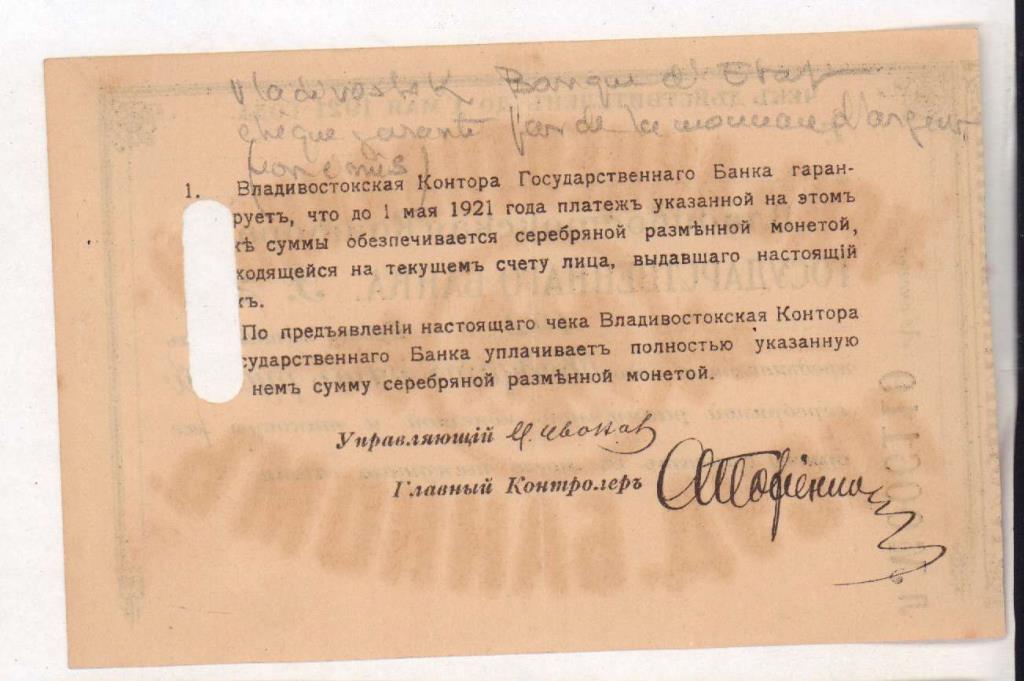 Vladivostok Banque d'Etat
chèque garanti par de la monnaie d'argent
1. Владивостокская Контора Государственнаго Банка гаран-
руетъ, что до 1 мая 1921 года платежъ указанной на этомъ
кѣ суммы обезпечивается серебряной размѣнной монетой,
ходящейся на текущемъ счету лица, выдавшаго настоящій
къ.
По предъявленіи настоящаго чека Владивостокская Контора
сударственнаго Банка уплачиваетъ полностью указанную
немъ сумму серебряной размѣнной монетой.
Управляющій
Главный Контролеръ